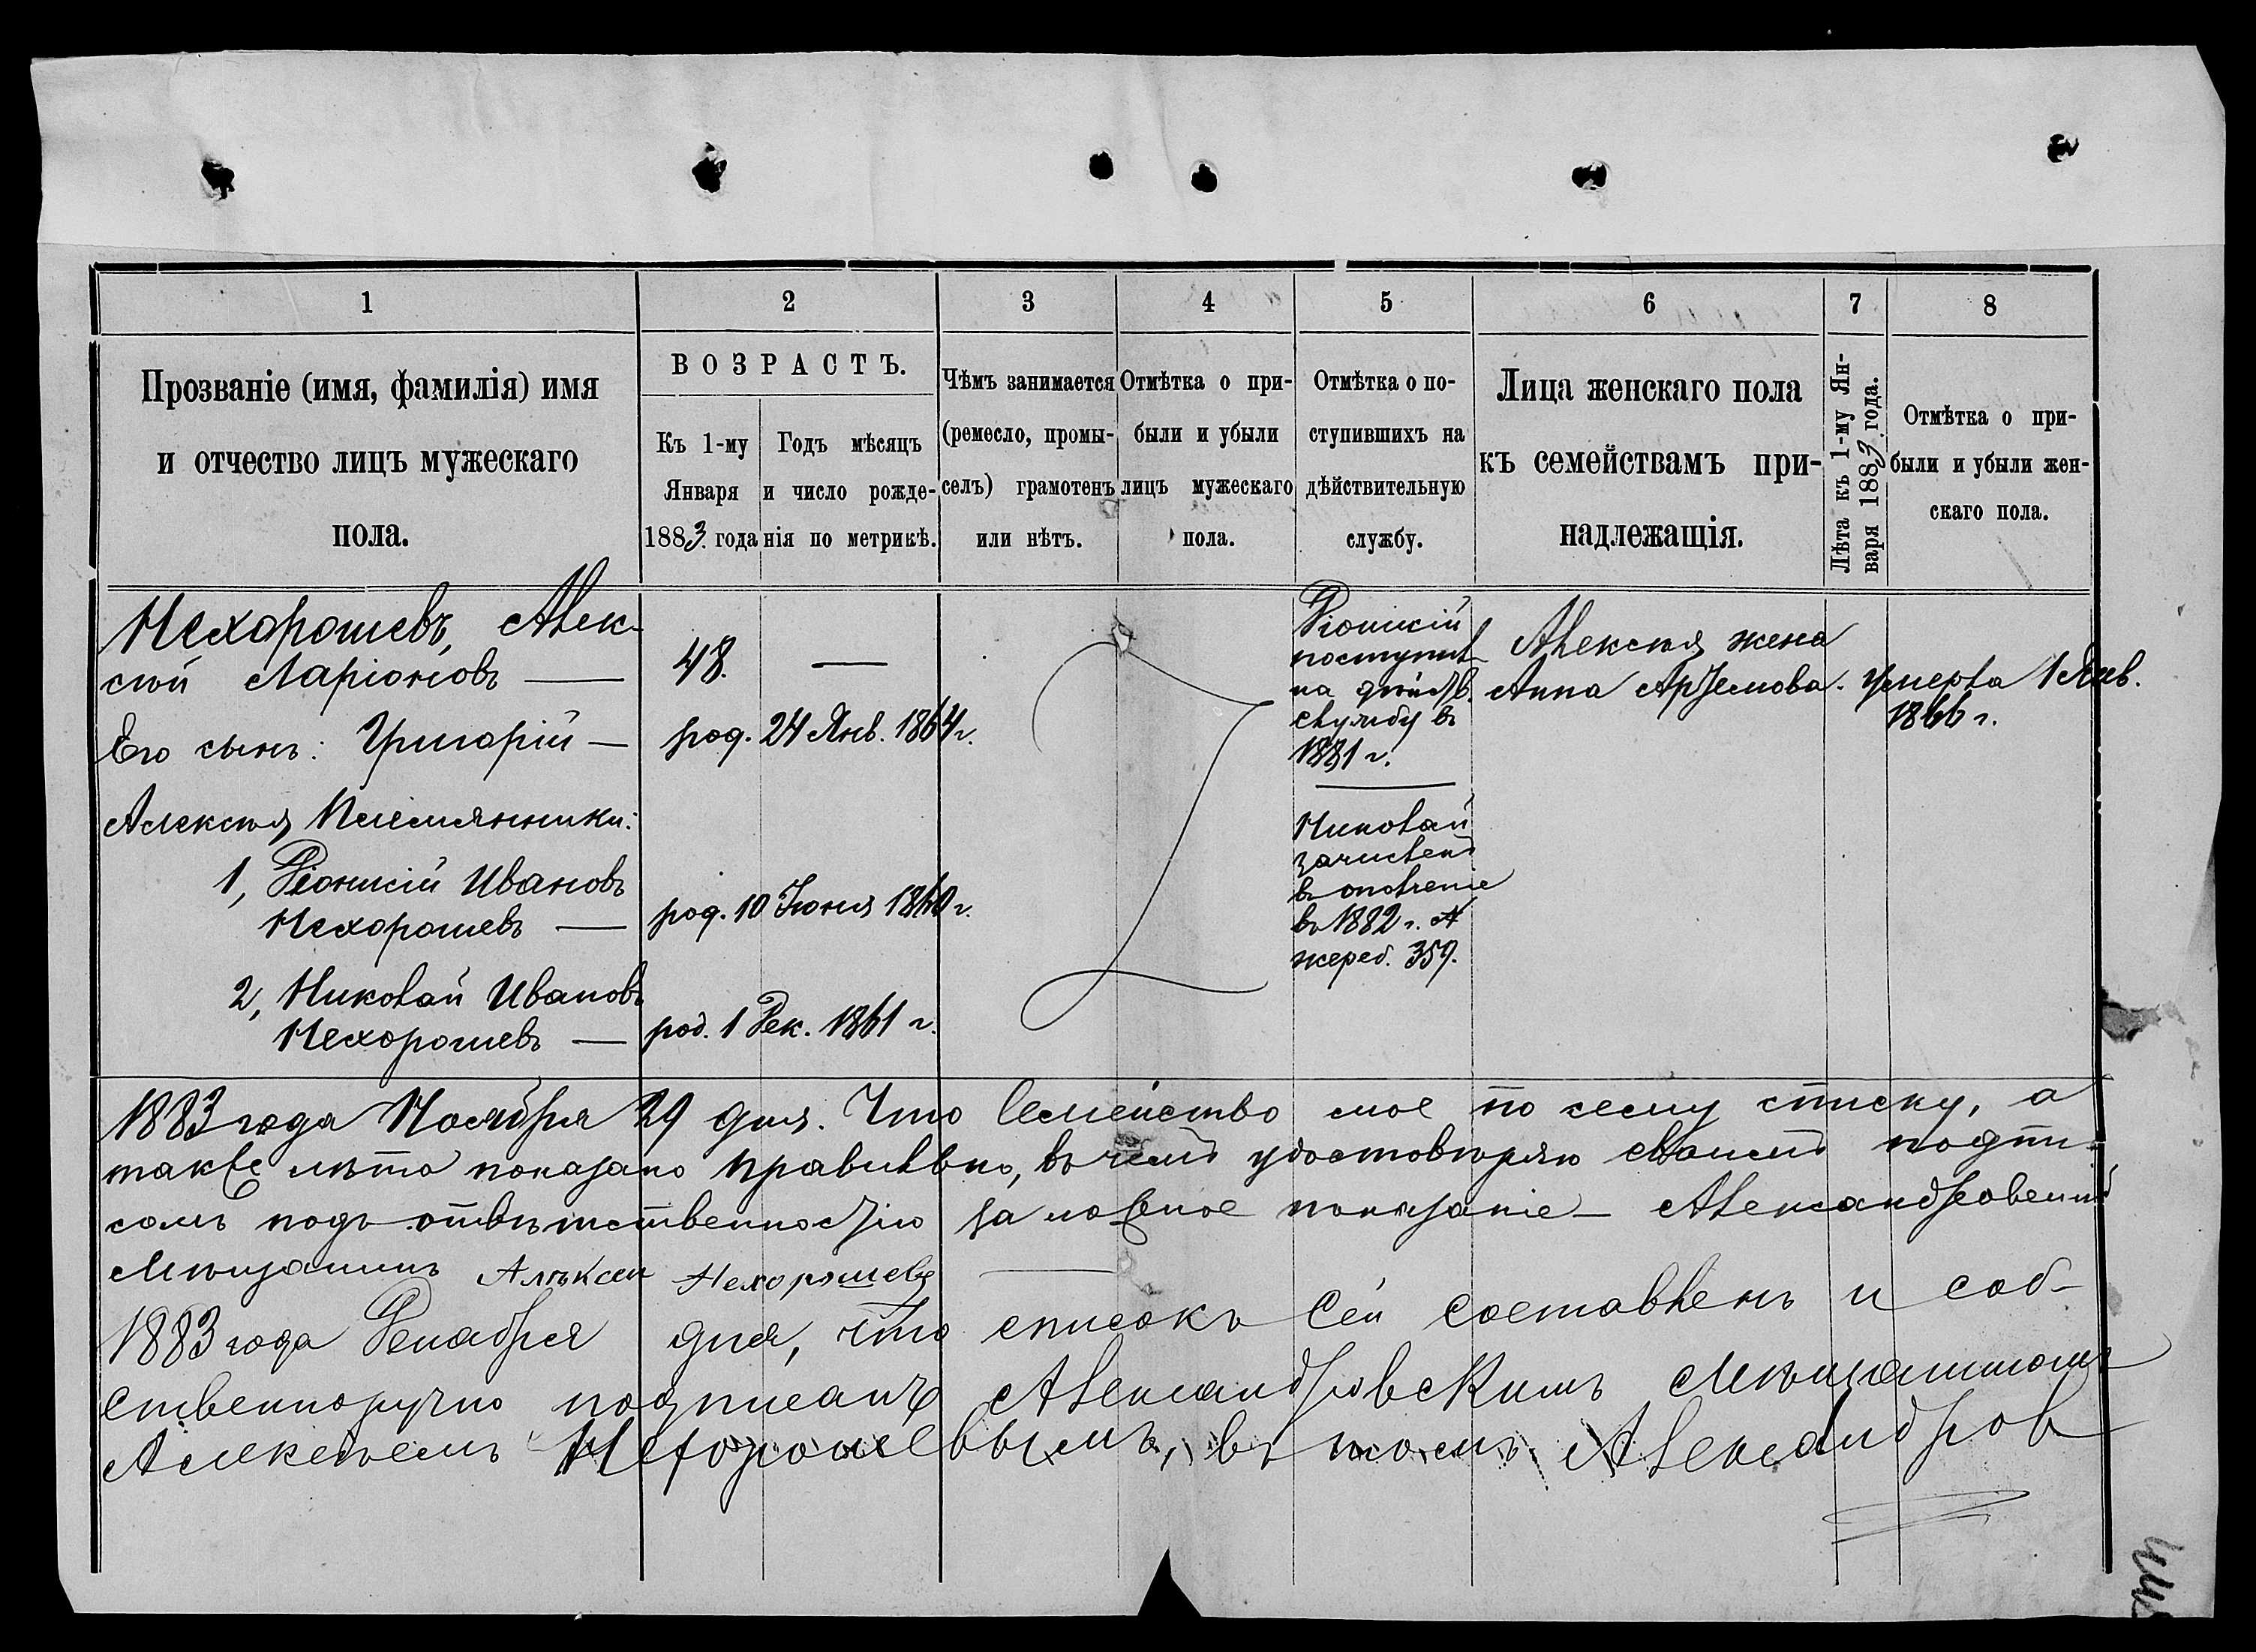 1
2
3
4
5
6
7
8
Прозваніе (имя, фамилія) имя
и отчество лицъ мужескаго
пола.
ВОЗРАСТЪ.
Къ 1-му
Января
1883. года
Годъ мѣсяцъ
и число рожде-
нія по метрикѣ.
Чѣмъ занимается
(ремесло, промы-
селъ) грамотенъ
или нѣтъ.
Отмѣтка о при-
были и убыли
лицъ мужескаго
пола.
Отмѣтка о по-
ступившихъ на
дѣйствительную
службу.
Лица женскаго пола
къ семействамъ при-
надлежащія.
Лѣта къ 1-му Ян-
варя 1883. года.
Отмѣтка о при-
были и убыли жен-
скаго пола.
Нехорошевъ, Алек-
сѣй Ларіоновъ —
48. —
Его сынъ: Григорій —
род. 24 Янв. 1864 г.
Алексѣя Племянники:
1, Діонисій Ивановъ
Нехорошевъ —
род. 10 Іюня 1860 г.
2, Николай Ивановъ
Нехорошевъ —
род. 1 Дек. 1861 г.
Діонисій
поступил
на дѣйств.
службу въ
1881 г.
Николай
зачисленъ
въ ополченіе
въ 1882 г. №
жереб. 359.
Алексѣя жена
Анна Артемова.
умерла 1 Янв.
1866 г.
1883 года Ноября 29 дня. Что Семейство мое по сему списку, а
также лѣта показано правильно, въ чемъ удостовѣряю своимъ подпи-
сомъ подъ отвѣтственностію за ложное показаніе — Александровскій
Мѣщанинъ Алѣксеи Нехорошевъ —
1883 года Декабря дня, что списокъ Сей составленъ и соб-
ственноручно подписанъ Александровскимъ Мѣщаниномъ
Алексѣемъ Нехорошевымъ, въ томъ Александров